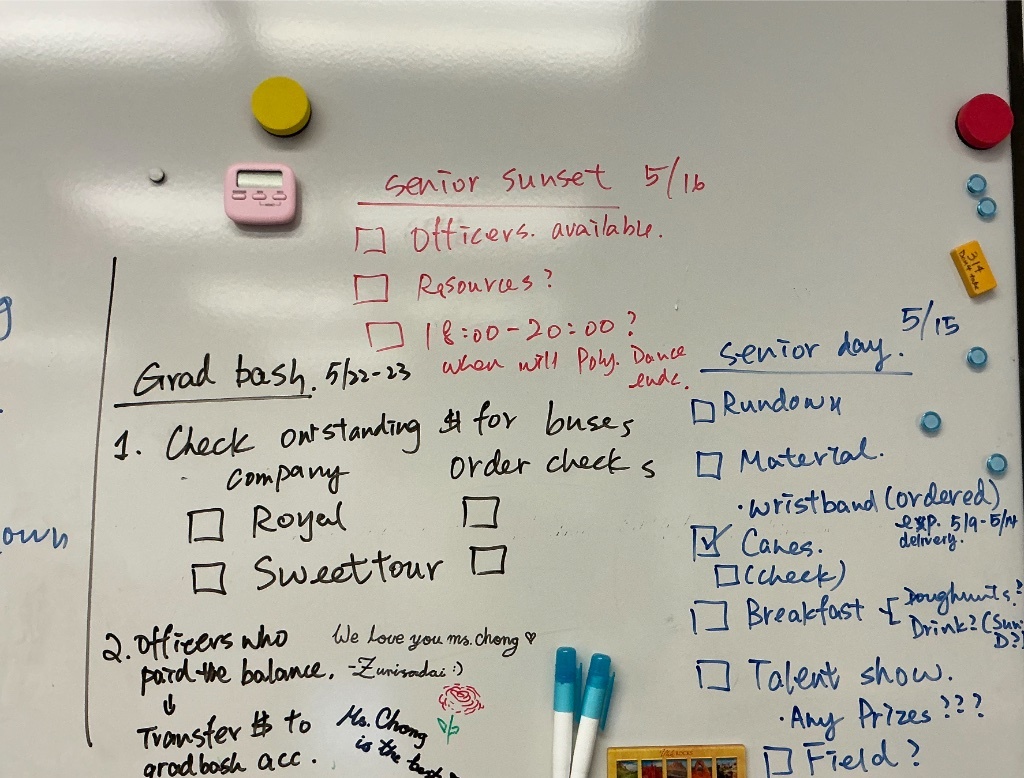 senior sunset 5/16
Officers. available.
Resources?
18:00-20:00?
when will Poly. Dance
ends.
Grad bash. 5/22-23
1. Check outstanding $ for buses
company order checks
Royal
Sweettour
2. Officers who
paid the balance.
↓
Transfer $ to
gradbash acc.
We Love you ms. chong ♡
-Zurisadai :)
Ms. Chong
is the best
senior day. 5/15
Rundown
Material.
· wristband (ordered)
exp. 5/9-5/14
delivery.
Canes.
(check)
Breakfast { Doughnuts?
Drink? (Sun
D?)
Talent show.
· Any Prizes ???
Field?
own
3/4